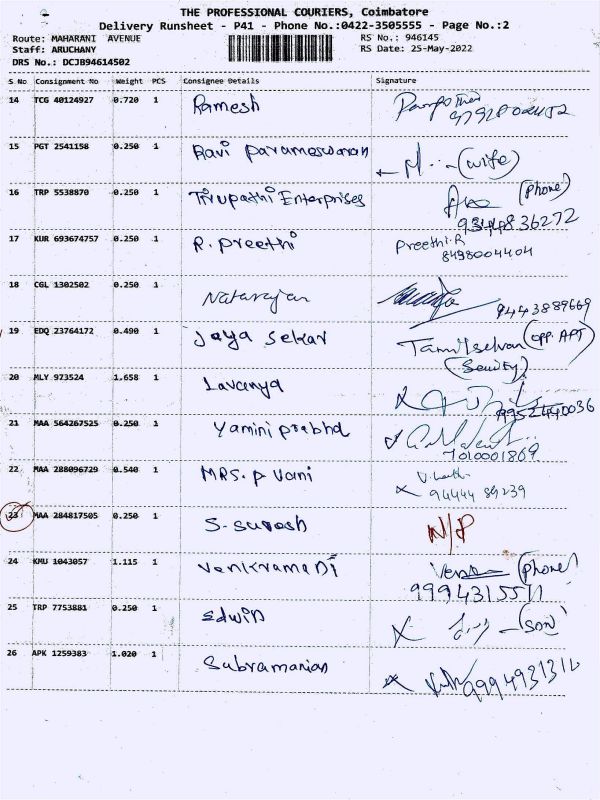 THE PROFESSIONAL COURIERS, Coimbatore
Delivery Runsheet - P41 - Phone No.:0422-3505555 - Page No.:2
Route: MAHARANI AVENUE RS No.: 946145
Staff: ARUCHANY RS Date: 25-May-2022
DRS No.: DCJB94614502
S No Consignment No Weight PCS Consignee Details Signature
14 TCG 40124927 0.720 1 Ramesh
15 PGT 2541158 0.250 1 Ravi Parameswaran (wife)
16 TRP 5538870 0.250 1 Tirupathi Enterprises (Phone)
9344836272
17 KUR 693674757 0.250 1 R. Preethi Preethi.R
8498004404
18 CGL 1302502 0.250 1 Natarajan
9443889669
19 EDQ 23764172 0.490 1 Jaya Sekar Tamilselvan (opp. APT)
20 MLY 973524 1.658 1 Lavanya
9952440036
21 MAA 564267525 0.250 1 Yamini prabha
7010001869
22 MAA 288096729 0.540 1 MRS. P Vani
94444 89239
23 MAA 284817505 0.250 1 S. Suresh N/P
24 KMU 1043057 1.115 1 Venkramani (Phone)
25 TRP 7753881 0.250 1 Edwin (Son)
26 APK 1259383 1.020 1 Subramanian